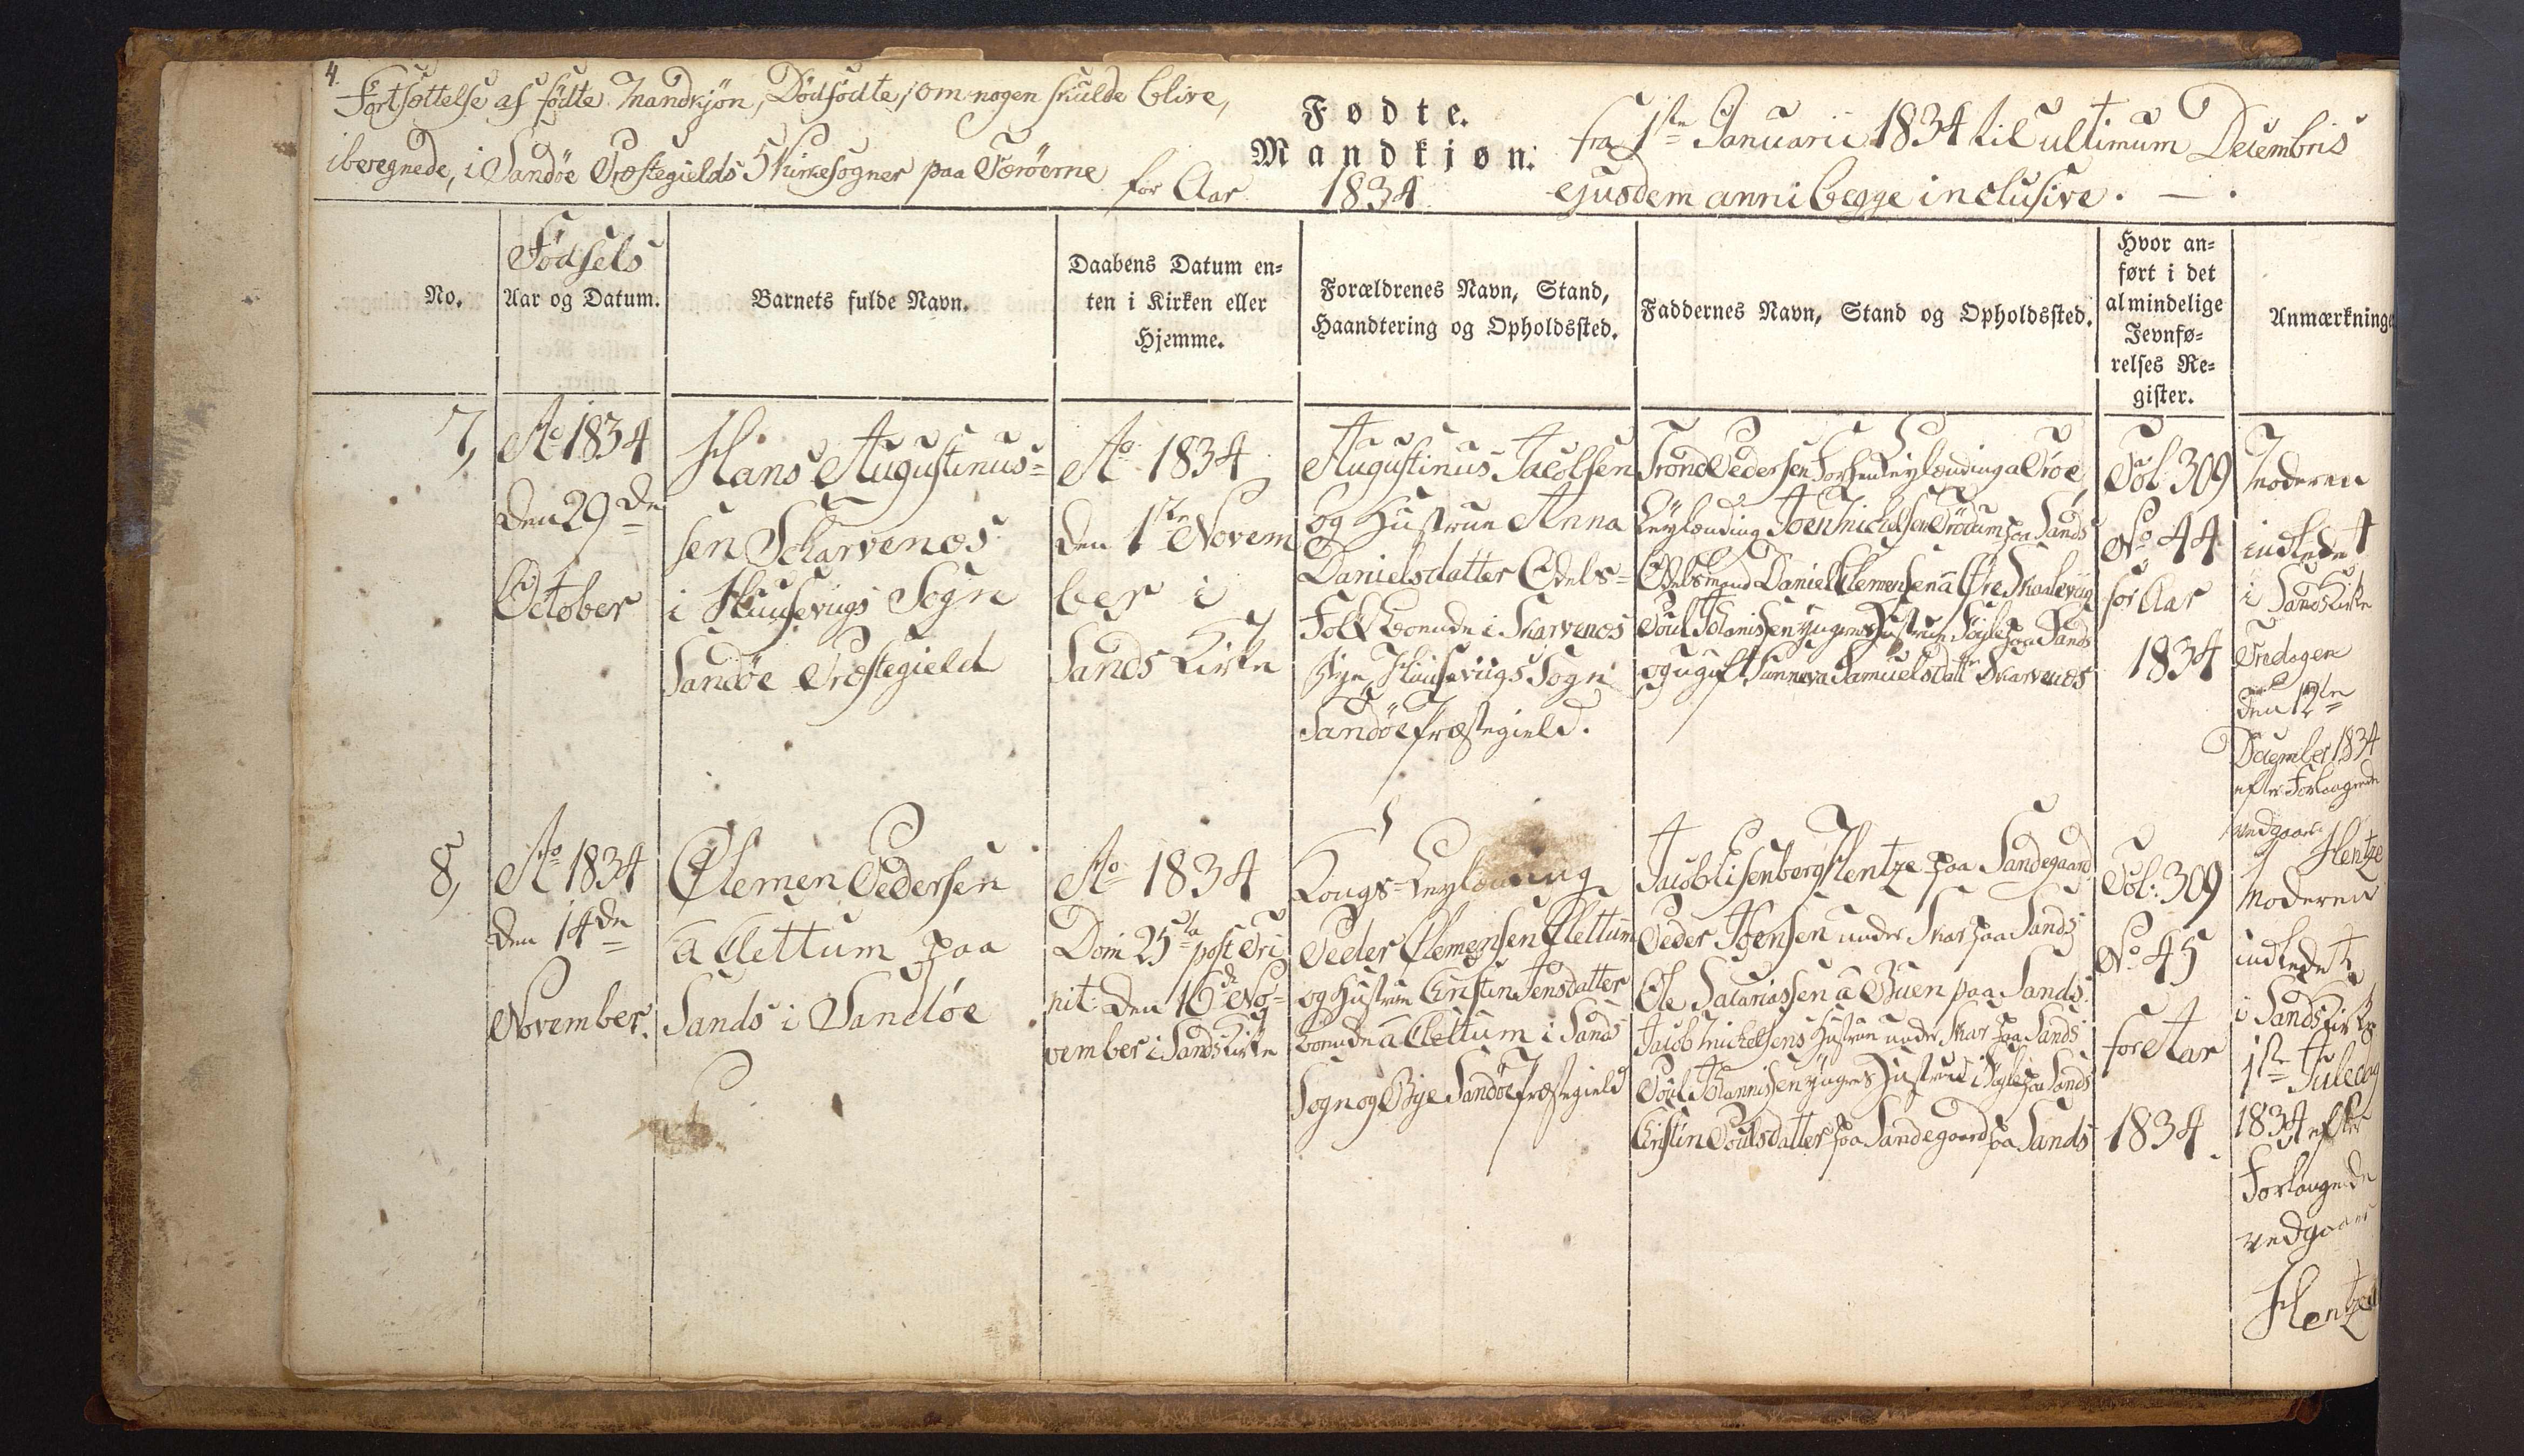 4.
Fortsættelse af fødte Mandkjøn, Dødfødte, om nogen skulde blive,
iberegnede, i Sandöe Præstegields 5 Kirkesogner paa Færöerne for Aar
Fødte.
Mandkjøn.
1834
fra 1ste Januarii 1834 til ultimum Decembris
ejusdem anni begge inclusive. — .
No.
Födsels
Aar og Datum.
Barnets fulde Navn.
Daabens Datum en-
ten i Kirken eller
Hjemme.
Forældrenes Navn, Stand,
Haandtering og Opholdssted.
Faddernes Navn, Stand og Opholdssted.
Hvor an-
ført i det
almindelige
Jevnfø-
relses Re-
gister.
Anmærkninge
7,
Ao 1834
den 29de
October
Hans Augustinus-
sen Scharvenæs
i Huusevigs Sogn
Sandöe Præstegield
Ao 1834
den 1ste Novem
ber i
Sands Kirke
Augustinus Jacobsen
og Hustrue Anna
Danielsdatter Odels-
Folk boende i Skarvenæs
Bye Huusevigs Sogn
Sandöe Præstegield.
Trond Pedersen
Joen Michelsen Tröðum paa Sands
Odelsmand Daniel Clemensen a Öre Skaalevig
Poul Johannissen yngres Hustrue paa Sands
og ugift Sunneva Samuelsdatt Skarvenæs
Fol 309
No 44
for Aar
1834
Moderen
indledet
i Sands Kirke
Fredagen
den 12te
December 1834
efter Forlangende
vedgaaer
Hentze
8,
Ao 1834
den 14de
November.
Clemen Pedersen
a Clettum paa
Sands i Sandöe
Ao 1834
Dom 25ta post Tri
nit: den 16de No-
vember i Sands Kirke
Kongs-Leylænding
Peder Clemensen Clettum
og Hustrue Cristin Jensdatter
boende a Clettum i Sands
Sogn og Bye Sandöe Præstegield
Jacob Lisenberg Hentze paa Sandegaard
Peder Joensen under Skar paa Sands
Ole Sacariassen a Buen paa Sands.
Jacob Michelsens Hustrue under Skar paa Sands
Poul Johannissen yngres Hustrue paa Sands
Cristin Poulsdatter paa Sandegaard paa Sands
Fol: 309
No 45
for Aar
1834.
Moderen
indledet
i Sands Kirke
1ste Juledag
1834 efter
Forlangende
vedgaaer
Hentze